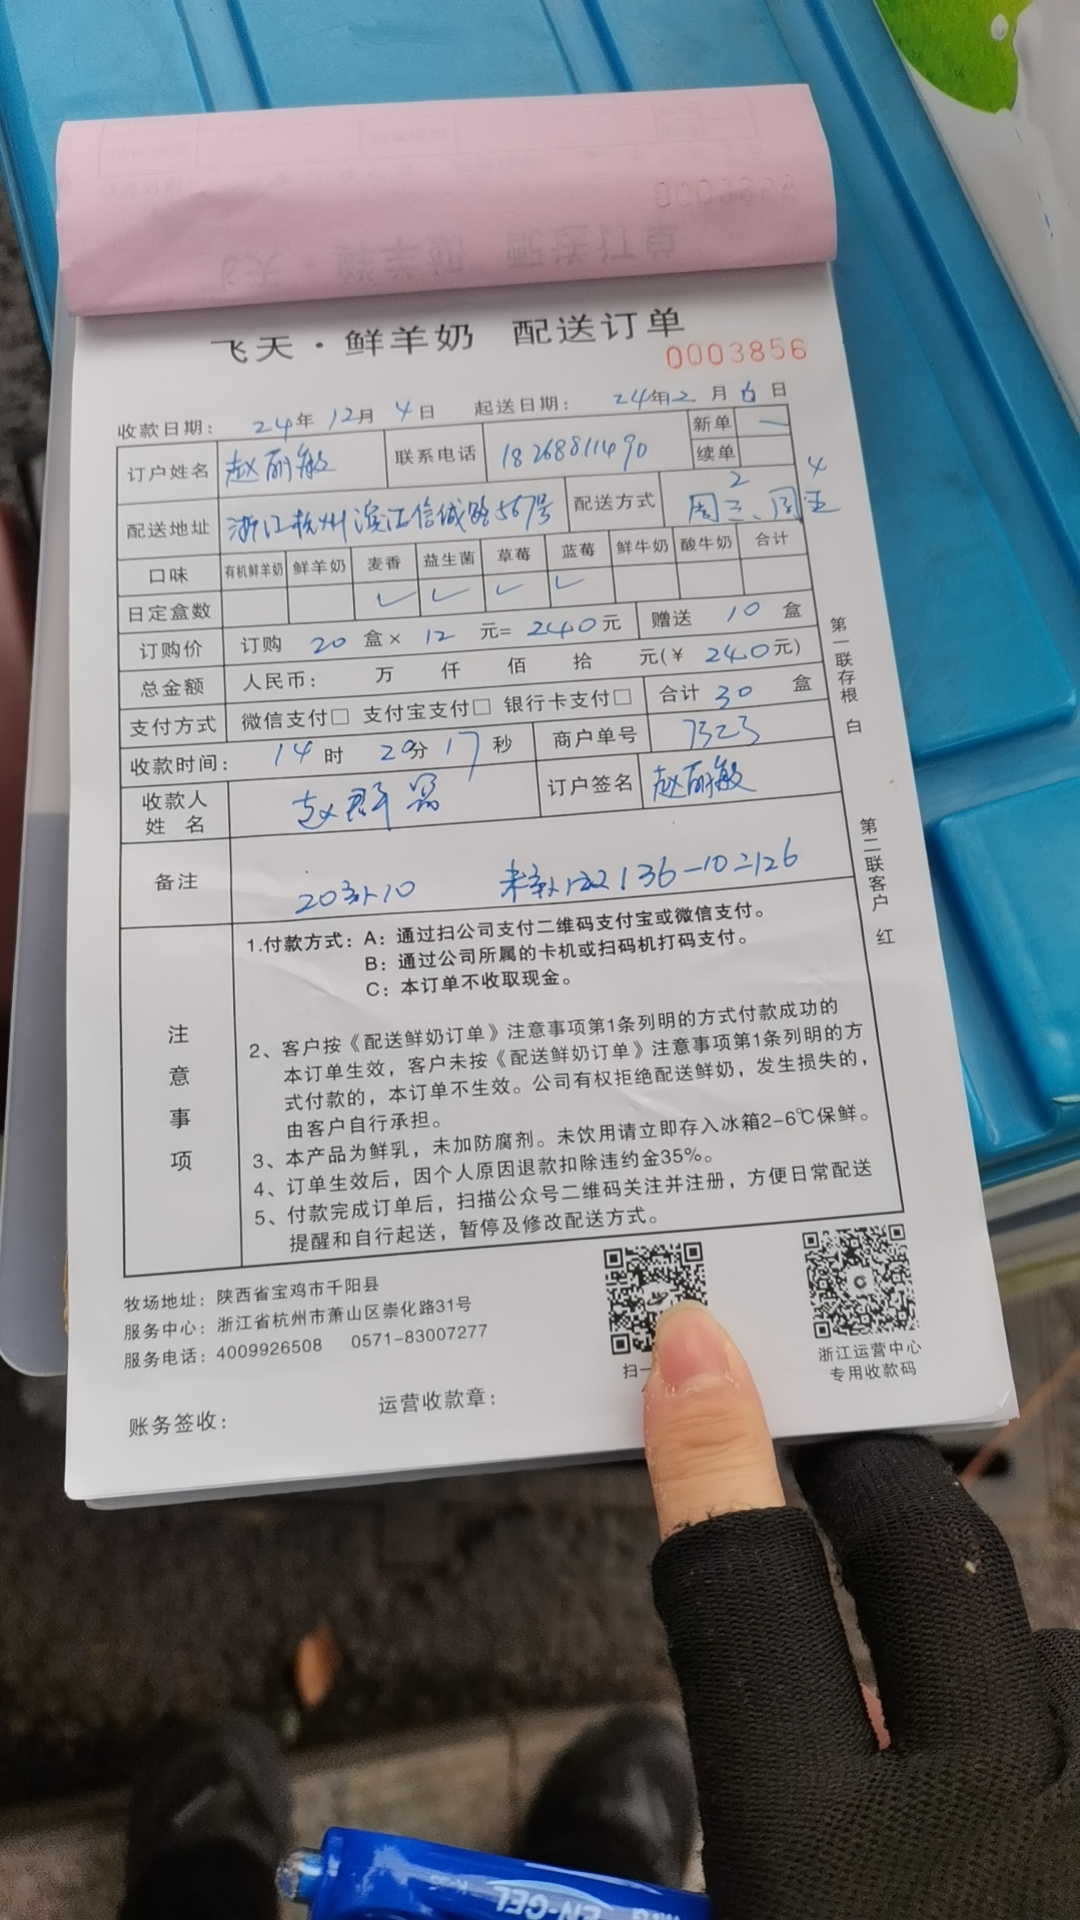 飞天·鲜羊奶 配送订单
0003856
收款日期： 24年 12月 4日 起送日期： 24年2月6日
订户姓名 赵丽敏 联系电话 18268811490 新单
续单
配送地址 浙江杭州滨江信诚路567号 配送方式 周三、周五 2 4
口味 有机鲜羊奶 鲜羊奶 麦香 益生菌 草莓 蓝莓 鲜牛奶 酸牛奶 合计
日定盒数 ✓ ✓ ✓ ✓
订购价 订购 20 盒× 12 元= 240元 赠送 10 盒
总金额 人民币： 万 仟 佰 拾 元(¥ 240元)
支付方式 微信支付□ 支付宝支付□ 银行卡支付□ 合计 30 盒
收款时间： 14时 20分 17秒 商户单号 7323
收款人姓名 赵群 订户签名 赵丽敏
备注 20 10 136-10=126
注意事项
1.付款方式：A：通过扫公司支付二维码支付宝或微信支付。
B：通过公司所属的卡机或扫码机打码支付。
C：本订单不收取现金。
2、客户按《配送鲜奶订单》注意事项第1条列明的方式付款成功的
本订单生效，客户未按《配送鲜奶订单》注意事项第1条列明的方
式付款的，本订单不生效。公司有权拒绝配送鲜奶，发生损失的，
由客户自行承担。
3、本产品为鲜乳，未加防腐剂。未饮用请立即存入冰箱2-6℃保鲜。
4、订单生效后，因个人原因退款扣除违约金35%。
5、付款完成订单后，扫描公众号二维码关注并注册，方便日常配送
提醒和自行起送，暂停及修改配送方式。
第一联存根 白
第二联客户 红
牧场地址：陕西省宝鸡市千阳县
服务中心：浙江省杭州市萧山区崇化路31号
服务电话：4009926508 0571-83007277
扫一
浙江运营中心
专用收款码
账务签收： 运营收款章：
EN-GEL